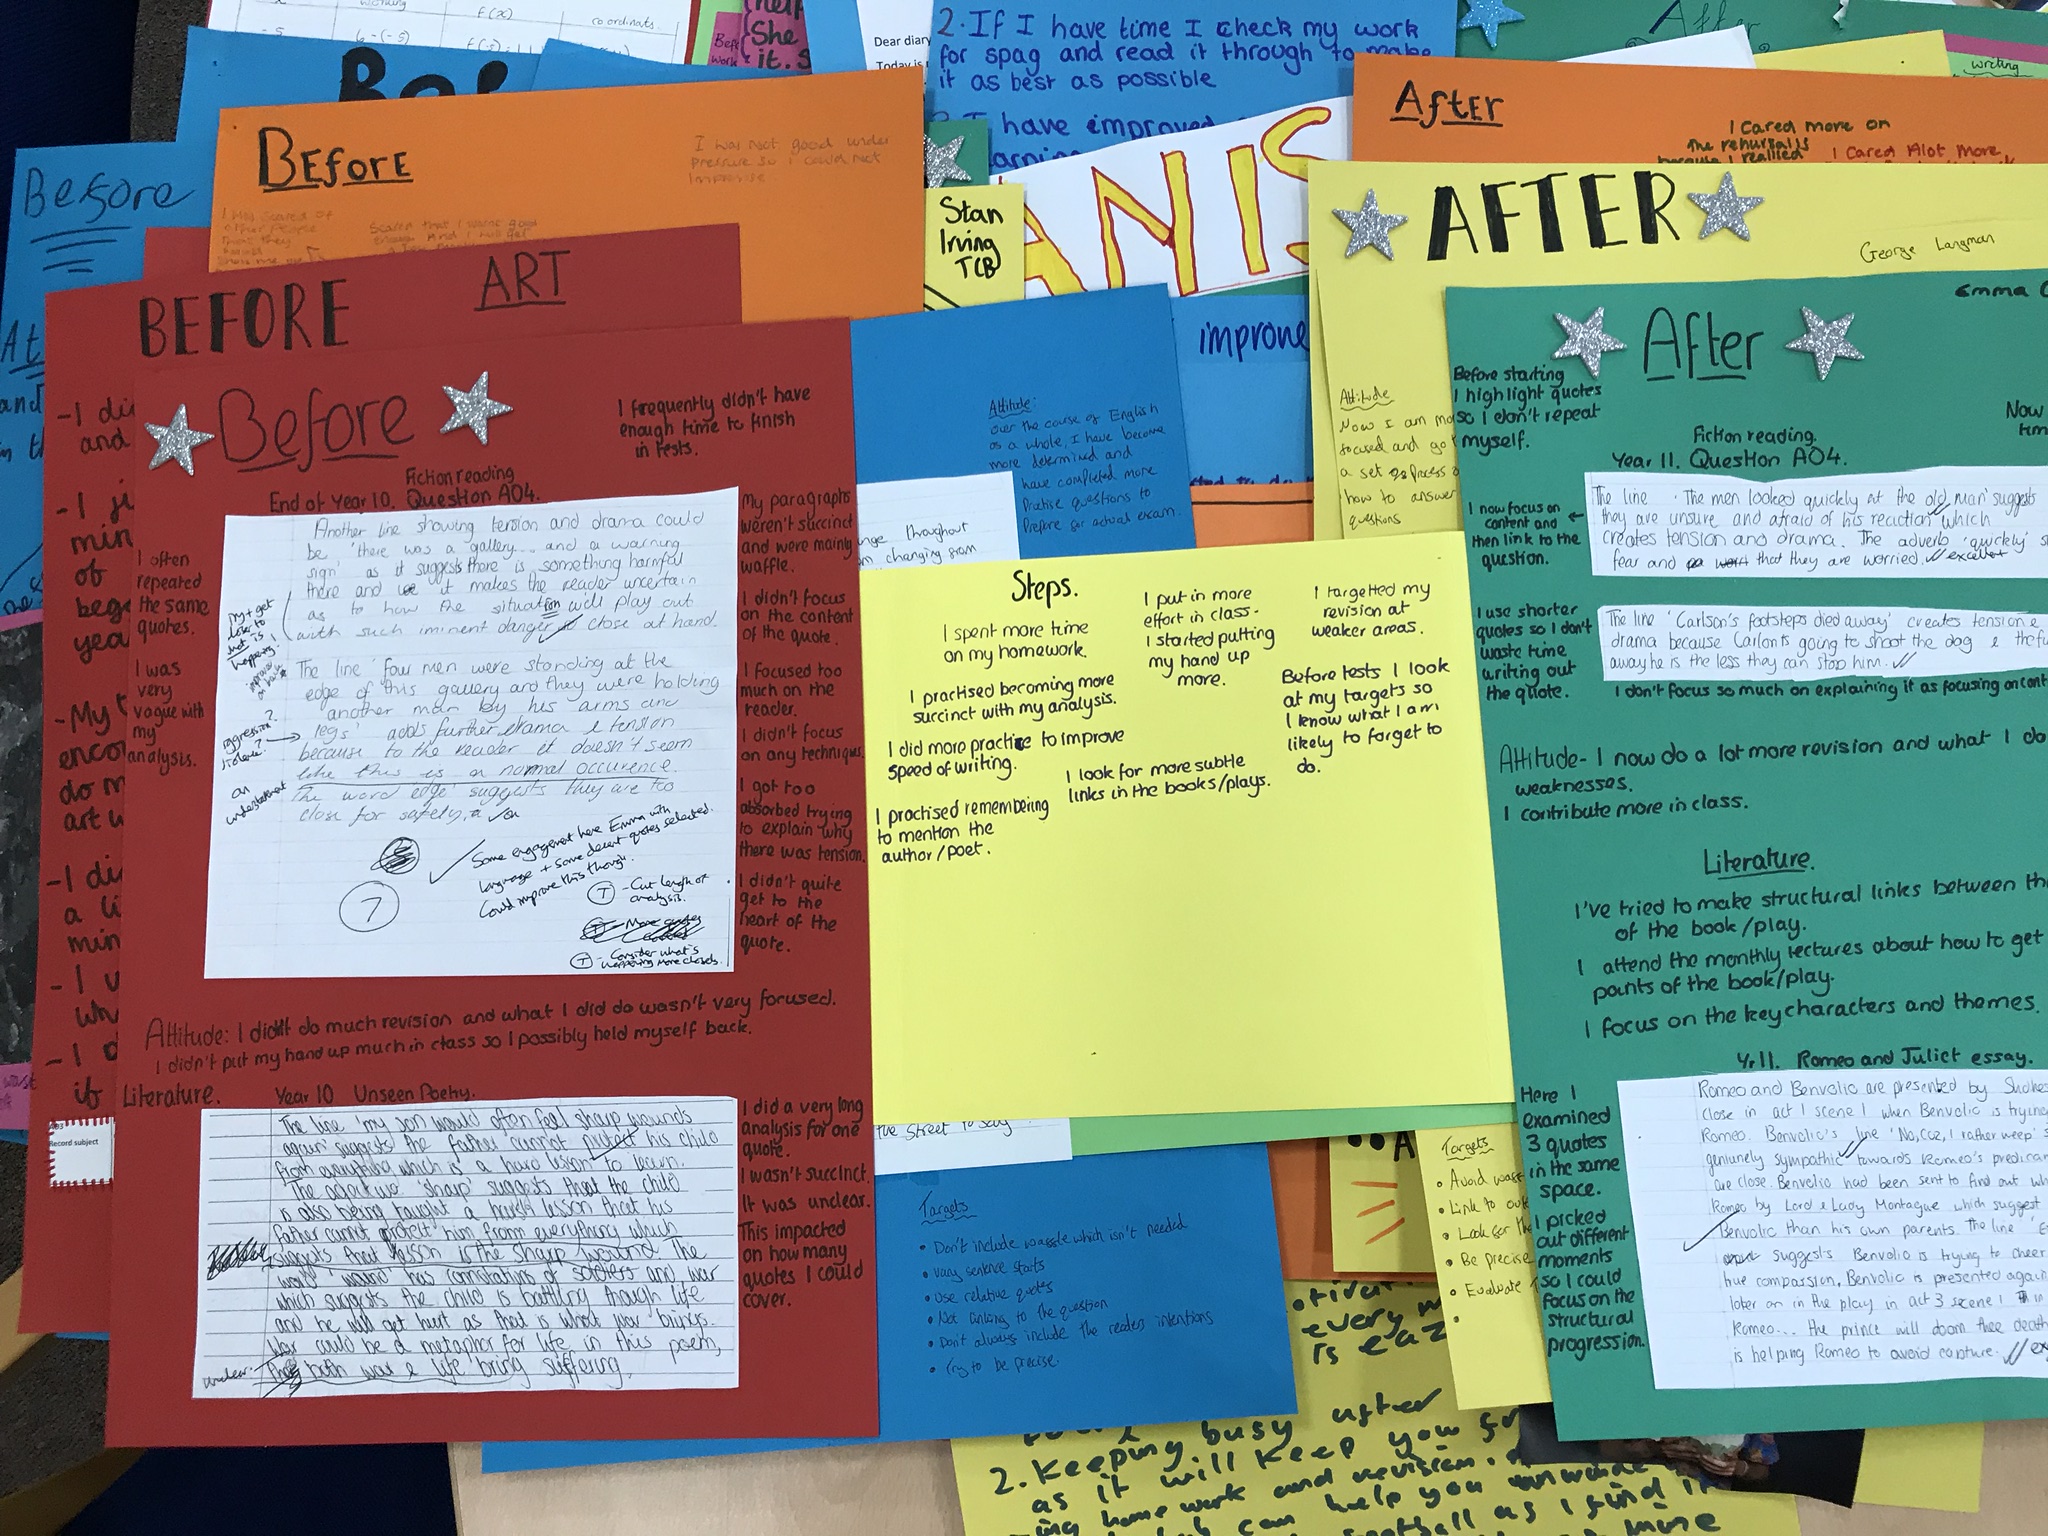 working
f(x)
co ordinats.
-5
6-(-5)
She
it. S
Dear diary
Today is
2. If I have time I check my work
for spag and read it through to make
it as best as possible
I have improved
After
writing
Before
Before
I was not good under
pressure so I could not
improvise.
I was scared of
other people
Stan
Irving
TCB
ANIS
improve
After
I cared more on
the rehursalls
because I realised
I cared Alot more
AFTER
George Langman
Attitude
Now I am mo
focused and go
a set of process o
how to answer
questions
BEFORE
ART
- I di
and
- I ji
min
of
beg
yea
- My t
enco
do m
art w
- I di
a li
min
- I u
wh
- I d
if
Record subject
Before
I frequently didn't have
enough time to finish
in tests.
Fiction reading
End of Year 10. Question AO4.
I often
repeated
the same
quotes.
I was
very
vague with
my
analysis.
Another line showing tension and drama could
be 'there was a gallery... and a warning
sign' as it suggests there is something harmful
there and it makes the reader uncertain
as to how the situation will play out
with such iminent danger so close at hand.
The line 'four men were standing at the
edge of this gallery and they were holding
another man by his arms and
legs' adds further drama & tension
because to the reader it doesn't seem
like this is a normal occurence.
The word 'edge' suggests they are too
close for safety.
Try + get
close to
what is
happening!
aggressive?
violence?
an
understatement
7
Some engagement here Emma with
language + some decent quotes selected.
Could improve this though.
T - Cut length of
analysis.
T - Consider what's
happening more closely.
My paragraphs
weren't succinct
and were mainly
waffle.
I didn't focus
on the content
of the quote.
I focused too
much on the
reader.
I didn't focus
on any techniques.
I got too
absorbed trying
to explain why
there was tension.
I didn't quite
get to the
heart of the
quote.
Attitude: I didn't do much revision and what I did do wasn't very focused.
I didn't put my hand up much in class so I possibly held myself back.
Literature.
Year 10 Unseen Poetry.
The line 'my son would often feel sharp wounds
again' suggests the father cannot protect his child
from everything which is a hard lesson to learn.
The adjective 'sharp' suggests that the child
is also being taught a harsh lesson that his
father cannot protect him from everything which
suggests that lesson is the sharp wound. The
word 'wound' has connotations of soldiers and war
which suggests the child is battling though life
and he will get hurt as that is what war brings.
War could be a metaphor for life in this poem,
both war & life bring suffering.
unclear.
I did a very long
analysis for one
quote.
I wasn't succinct.
It was unclear.
This impacted
on how many
quotes I could
cover.
Attitude:
over the course of English
as a whole, I have become
more determined and
have completed more
Practise questions to
Prepare for actual exam.
nge throughout
changing from
Steps.
I spent more time
on my homework.
I practised becoming more
succinct with my analysis.
I did more practice to improve
speed of writing.
I practised remembering
to mention the
author/poet.
I put in more
effort in class.
I started putting
my hand up
more.
I look for more subtle
links in the books/plays.
I targetted my
revision at
weaker areas.
Before tests I look
at my targets so
I know what I am
likely to forget to
do.
the street to say
Targets
• Don't include waffle which isn't needed
• vary sentence starts
• use relative quotes
• Not linking to the question
• Don't always include the readers intentions
• Try to be precise.
Targets
• Avoid waff
• Link to out
• Look for th
• Be precise
• Evaluate
every m
is eaz
2. Keeping busy after
as it will keep you fr
ing home work and revision.
can help you
football as I find it
more
After
Emma
Before starting
I highlight quotes
so I don't repeat
myself.
Now
tim
Fiction reading.
Year 11. Question AO4.
I now focus on
content and
then link to the
question.
The line 'The men looked quickly at the old man' suggests
they are unsure and afraid of his reaction which
creates tension and drama. The adverb 'quickly' s
fear and that they are worried. excellent
I use shorter
quotes so I don't
waste time
writing out
the quote.
The line 'Carlson's footsteps died away' creates tension &
drama because Carlon's going to shoot the dog & the fu
away he is the less they can stop him.
I don't focus so much on explaining it as focusing on cont
Attitude - I now do a lot more revision and what I do
weaknesses.
I contribute more in class.
Literature.
I've tried to make structural links between th
of the book/play.
I attend the monthly lectures about how to get
points of the book/play.
I focus on the key characters and themes.
Yr 11. Romeo and Juliet essay.
Here I
examined
3 quotes
in the same
space.
I picked
out different
moments
so I could
focus on the
structural
progression.
Romeo and Benvolio are presented by Shakes
close in act 1 scene 1 when Benvolio is trying
Romeo. Benvolio's line 'No, coz, I rather weep' s
geniunely sympathic towards Romeo's predicam
are close. Benvolio had been sent to find out wh
Romeo by Lord & Lady Montague which suggest
Benvolio than his own parents. The line
suggests Benvolio is trying to cheer
true compassion. Benvolio is presented again
later on in the play in act 3 scene 1
Romeo... the prince will doom thee death
is helping Romeo to avoid capture.